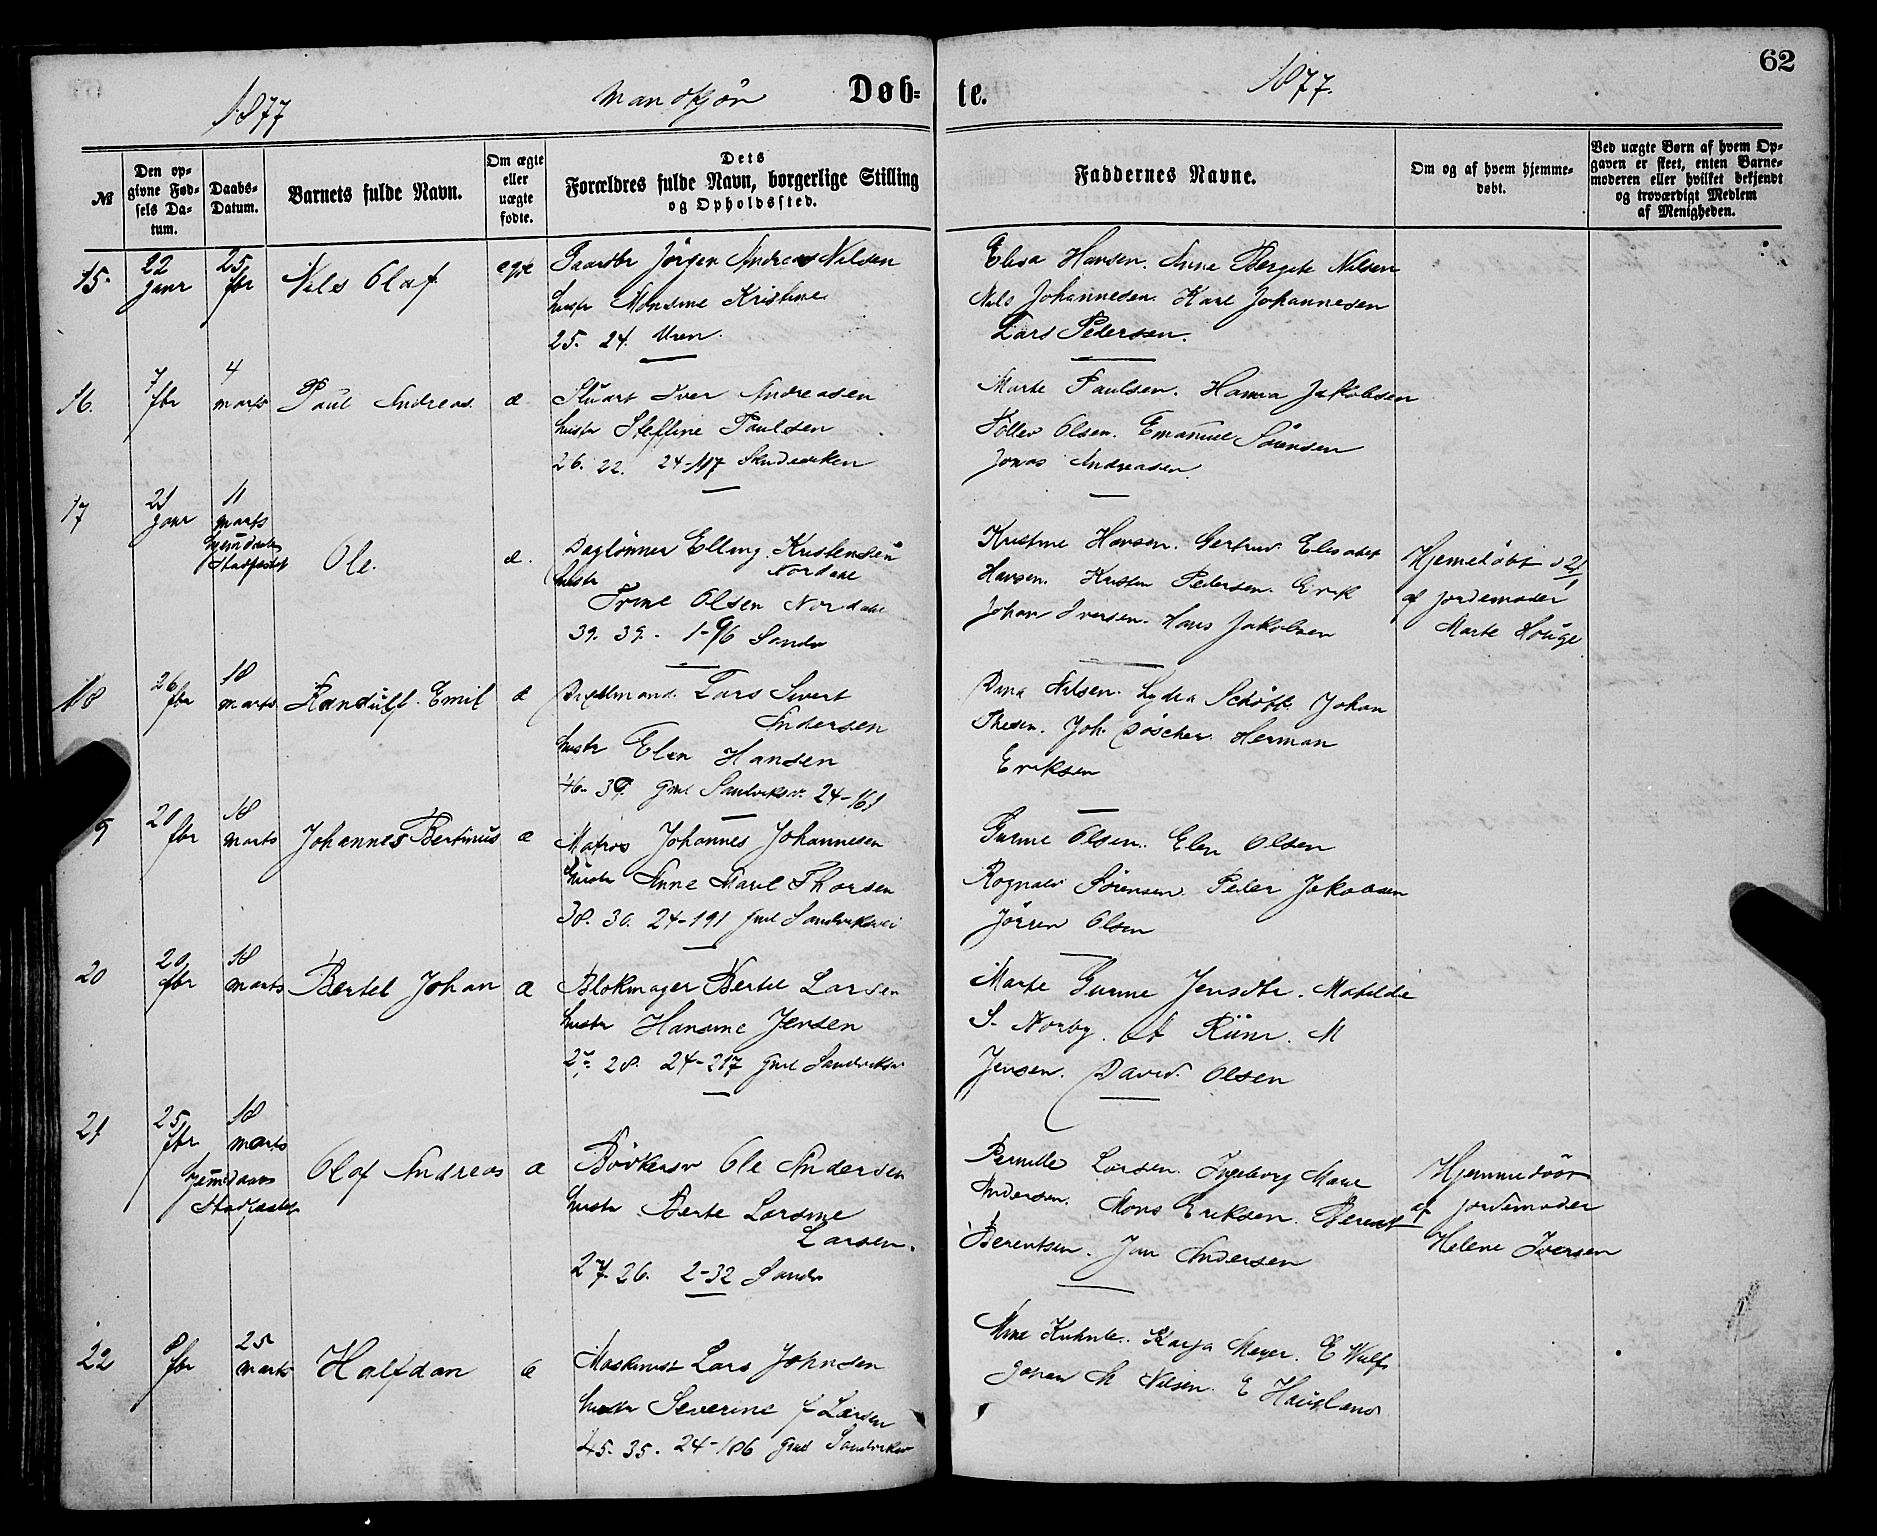 62
1877 Mandkjøn Døb- te. 1877.
№
Den op-
givne Fød-
sels Da-
tum.
Daabs-
Datum.
Barnets fulde Navn.
Om ægte
eller
uægte
fødte.
Dets
Forældres fulde Navn, borgerlige Stilling
og Opholdssted.
Faddernes Navne.
Om og af hvem hjemme-
døbt.
Ved uægte Børn af hvem Op-
gaven er skeet, enten Barne-
moderen eller hvilket bekjendt
og troværdigt Medlem
af Menigheden.
15.
22
Janr
25
fbr
Nils Olaf
Jørgen Andreas Nilsen
hustr Monsine Kristine
25. 24.
Elisa Hansen. Anne Bergite Nilsen
Nils Johannesen. Karl Johannesen
Lars Pedersen.
16.
7
fbr
4
marts
Paul Andreas.
æ
Stuart Iver Andreasen
hustr Steffine Paulsen
26. 22. 24-117 Sandviken
Marte Paulsen. Hanna Jakobsen
Tollev Olsen. Emanuel Sørensen
Jonas Andreasen
17
21
Janr
11
marts
hjemdaabs
Stadfæstet
Ole.
æ.
Daglønner Elling Kristensen
Nordahl
hustr
Trine Olsen Nordahl
39. 39. 1-96 Sandv
Kristine Hansen. Gertrud Elisabet
Hansen. Kristen Pedersen. Erik
Johan Iversen. Hans Jakobsen
Hjemedøbt d 21/1
af jordemoder
Marte Houge
18
26
fbr
18
marts
Randulf Emil
æ
Lars Sivert
Andersen
hustr Elen Hansen
46. 39. Gml Sandviksv. 24-161
Dina Nilsen. Lydia Johan
Thesen. Joh. Döscher. Herman
Eriksen
9
20
fbr
18
marts
Johannes Bertinius
æ
Matros Johannes Johannesen
hustr Anne Marie Thorsen
38. 30. 24-191 Gml Sandviksvei
Gurine Olsen. Elen Olsen
Rognald Sørensen. Peder Jakobsen
Jørgen Olsen
20
20
fbr
18
marts
Bertel Johan
æ
Blokmager Bertel Larsen
hustr Hansine Jensen
28. 24-217 Gml Sandviksv
Marte Gurine Jensdtr. Matilde
S. Norby. M
Jensen. David Olsen
21
25
fbr
18
marts
hjemdaabs
Stadfæstet
Olaf Andreas
æ
Bødkersv Ole Andersen
hustr Berte Larsine
Larsen.
27. 26. 2-32 Sandv
Pernille Larsen. Ingeborg Marie
Andersen. Mons Eriksen. Berent
Berentsen. Jan Andersen
Hjemmedøbt
af jordemoder
Helene Iversen
22
8
fbr
25
marts
Halfdan
æ
Maskinist Lars Johnsen
hustr Severine f Larsen
45. 35. 24-106 Gml Sandviksv
Kaija Meyer. E Wulf
Johan M Nilsen. E Haugland